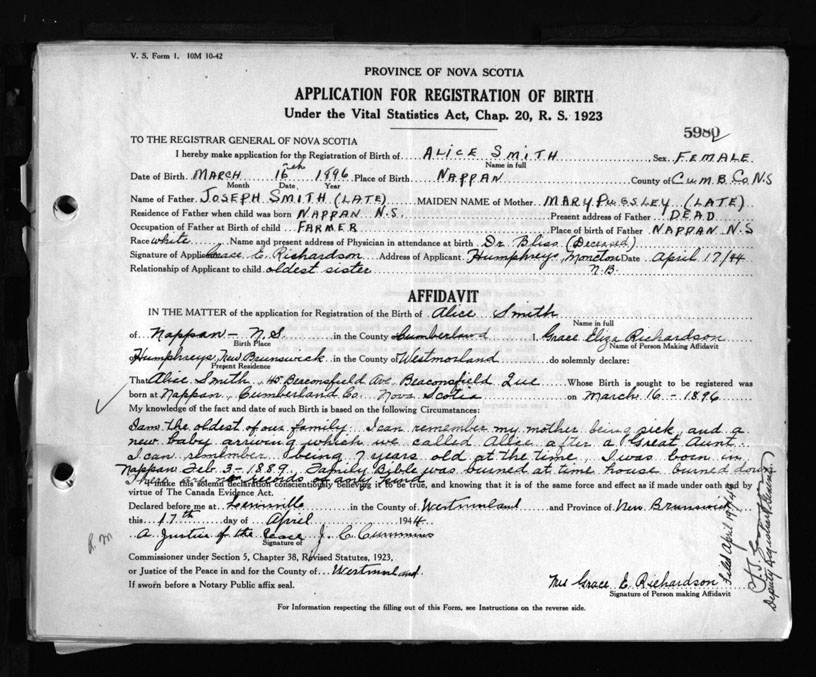 V. S. Form 1. 10M 10-42
PROVINCE OF NOVA SCOTIA
APPLICATION FOR REGISTRATION OF BIRTH
Under the Vital Statistics Act, Chap. 20, R. S. 1923
TO THE REGISTRAR GENERAL OF NOVA SCOTIA
I hereby make application for the Registration of Birth of ALICE SMITH Sex FEMALE
Name in full
Date of Birth MARCH 16th 1896 Place of Birth NAPPAN County of CUMB. Co. N.S
Month Date Year
Name of Father JOSEPH SMITH (LATE) MAIDEN NAME of Mother MARY PUGSLEY (LATE)
Residence of Father when child was born NAPPAN N.S. Present address of Father DEAD
Occupation of Father at Birth of child FARMER Place of birth of Father NAPPAN N.S
Race white Name and present address of Physician in attendance at birth Dr. Bliss (Deceased)
Signature of Applicant Grace E. Richardson Address of Applicant Humphreys, Moncton N.B. Date April 17/44
Relationship of Applicant to child oldest sister
AFFIDAVIT
IN THE MATTER of the application for Registration of the Birth of Alice Smith
Name in full
of Nappan - N.S. in the County Cumberland I, Grace Eliza Richardson
Birth Place Name of Person Making Affidavit
Humphreys, New Brunswick in the County of Westmorland do solemnly declare:
Present Residence
That Alice Smith, 45 Beaconsfield Ave. Beaconsfield Que Whose Birth is sought to be registered was
born at Nappan, Cumberland Co. Nova Scotia on March 16 - 1896
My knowledge of the fact and date of such Birth is based on the following Circumstances:
I am the oldest of our family. I can remember my mother being sick and a
new baby arriving which we called Alice after a Great Aunt.
I can remember being 7 years old at the time, I was born in
Nappan Feb. 3 - 1889. Family Bible was burned at time house burned down
There are no records of any kind
I make this solemn declaration conscientiously believing it to be true, and knowing that it is of the same force and effect as if made under oath and by
virtue of The Canada Evidence Act.
Declared before me at in the County of Westmorland and Province of New Brunswick
this 17th day of April 1944.
A. Justice of the Peace J. C. Cummins
Signature of
Commissioner under Section 5, Chapter 38, Revised Statutes, 1923,
or Justice of the Peace in and for the County of Westmorland.
If sworn before a Notary Public affix seal.
Mrs Grace E. Richardson
Signature of Person making Affidavit
For Information respecting the filling out of this Form, see Instructions on the reverse side.
Filed April 19/44
Deputy Registrar General